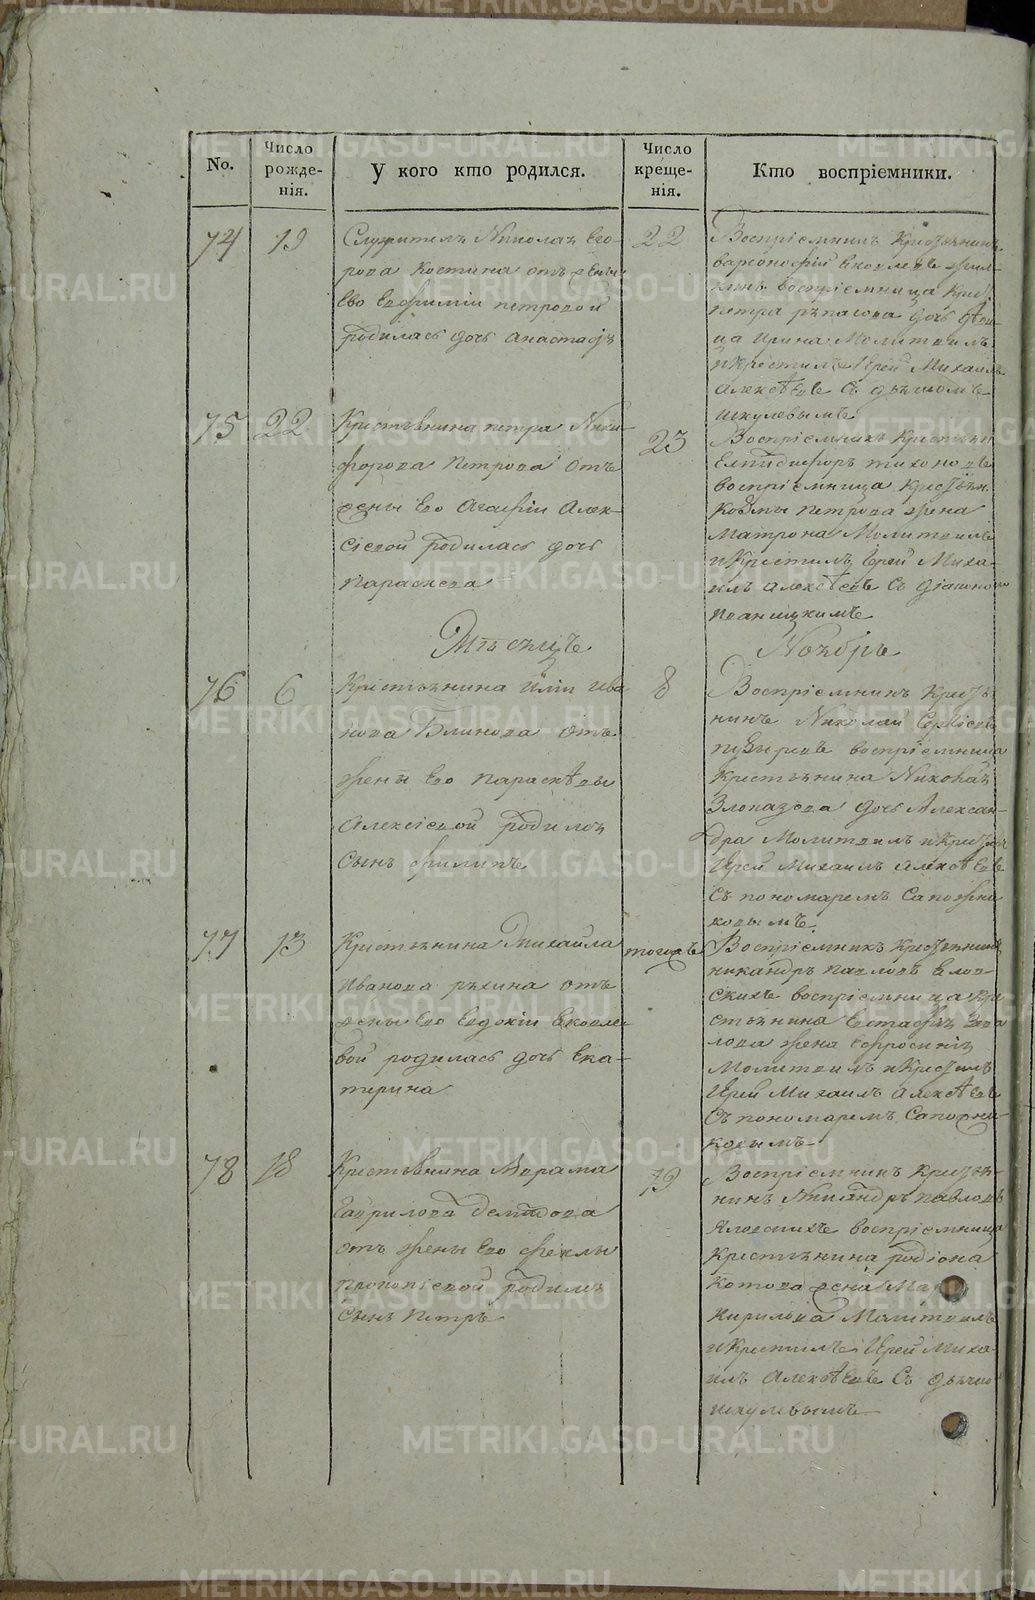 No.
Число рожденія.
У кого кто родился.
Число крещенія.
Кто воспріемники.
74
19
Служителя Николая Его-
рова Костина отъ жены
Его Евфиміи петровой
родилась дочь анастасія
22
Воспріемникъ Крестьянинъ
воспріемница
петра
дочь
ца Ирина Молитвилъ
и Крестилъ Іерей Михаилъ
Алексѣевъ Съ дьячкомъ
Шкулевымъ
75
22
Кристьянина петра Ники-
форова Петрова отъ
жены Его Агафіи Алек-
сіевой родилась дочь
Параскева
23
Воспріемникъ Кристьян
тихоновъ
воспріемница Кристьян.
Козмы Петрова жена
Матрона Молитвилъ
и Крестилъ Іерей Миха-
илъ алексѣевъ Съ діакономъ
Иваницкимъ
Мѣсяцъ
Ноябрь
76
6
Кристьянина Иліи Ива
нова Блинова отъ
жены Его Параскѣвы
Алексіевой родился
Сынъ филипъ
8
Воспріемникъ Кристья
нинъ Николай Сергіевъ
воспріемница
Кристьянина Николая
Злоказова дочь Алексан-
дра Молитвилъ и Крестилъ
Іерей Михаилъ Алексѣевъ
Съ пономаремъ Сапожни
ковымъ
77
13
Кристьянина Михайла
Иванова ряхина отъ
жены Его Евдокіи Яковле-
вой родилась дочь Ека-
терина
тогожъ
Воспріемникъ Крестьянинъ
никандръ Павловъ Клев-
скихъ воспріемница Кри
стьянина Евстафія
лова жена Ефросинія
Молитвилъ и Крестилъ
Іерей Михаилъ Алексѣевъ
Съ пономаремъ Сапожни
ковымъ
78
18
Кристьянина Аврама
Гаврилова Демидова
отъ жены Его Феклы
Прокопіевой родился
Сынъ Петръ
19
Воспріемникъ Кристья-
нинъ Никандръ павловъ
Клевскихъ воспріемница
Кристьянина родіона
Котова жена Ма
Кирилова Молитвилъ
и Крестилъ Іерей Миха-
илъ Алексѣевъ Съ дьячко
Шкулевымъ
METRIKI.GASO-URAL.RU